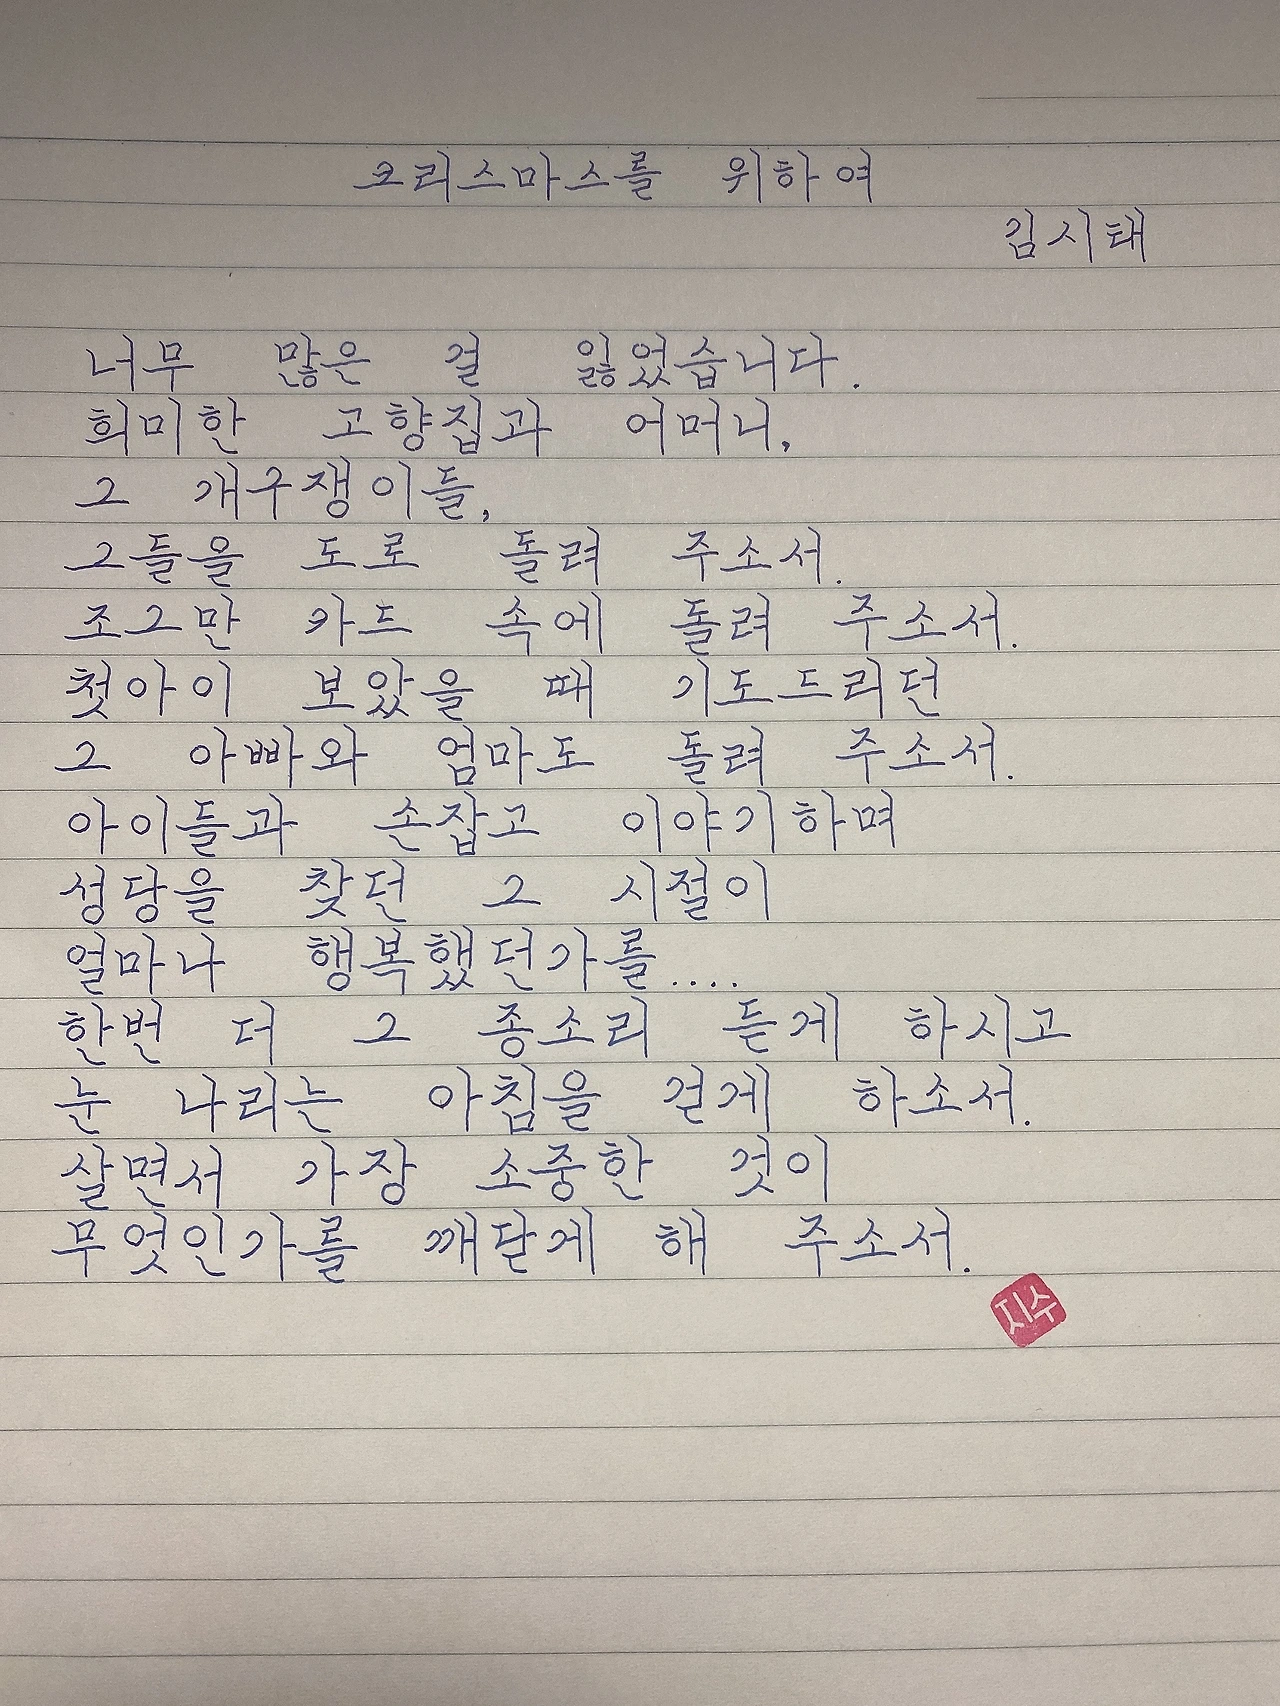 크리스마스를 위하여
김시태
너무 많은 걸 잃었습니다.
희미한 고향집과 어머니,
그 개구쟁이들,
그들을 도로 돌려 주소서.
조그만 카드 속에 돌려 주소서.
첫아이 보았을 때 기도드리던
그 아빠와 엄마도 돌려 주소서.
아이들과 손잡고 이야기하며
성당을 찾던 그 시절이
얼마나 행복했던가를....
한번 더 그 종소리 듣게 하시고
눈 나리는 아침을 걷게 하소서.
살면서 가장 소중한 것이
무엇인가를 깨닫게 해 주소서.
지수